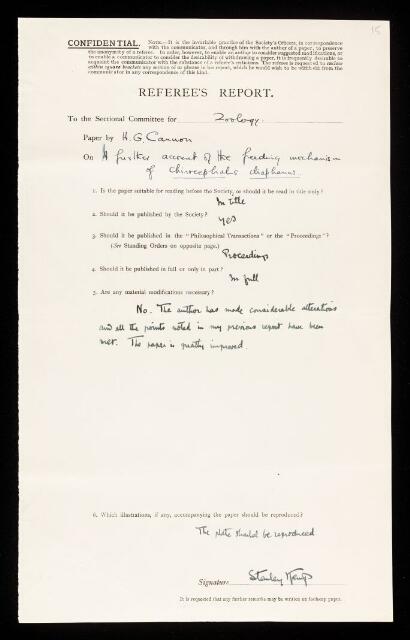 15
CONFIDENTIAL. NOTE.—It is the invariable practice of the Society's Officers, in correspondence
with the communicator, and through him with the author of a paper, to preserve
the anonymity of a referee. In order, however, to enable an author to consider suggested modifications, or
to enable a communicator to consider the desirability of withdrawing a paper, it is frequently desirable to
acquaint the communicator with the substance of a referee's criticisms. The referee is requested to enclose
within square brackets any section or phrase in his report, which he would wish to be withheld from the
communicator in any correspondence of this kind.
REFEREE'S REPORT.
To the Sectional Committee for Zoology
Paper by H. G. Cannon
On A further account of the feeding mechanism
of Chirocephalus diaphanus.
1. Is the paper suitable for reading before the Society, or should it be read in title only?
In title
2. Should it be published by the Society?
Yes
3. Should it be published in the "Philosophical Transactions" or the "Proceedings"?
(See Standing Orders on opposite page.)
Proceedings
4. Should it be published in full or only in part?
In full
5. Are any material modifications necessary?
No. The author has made considerable alterations
and all the points noted in my previous report have been
met. The paper is greatly improved.
6. Which illustrations, if any, accompanying the paper should be reproduced?
The plate should be reproduced
Signature Stanley Kemp
It is requested that any further remarks may be written on foolscap paper.